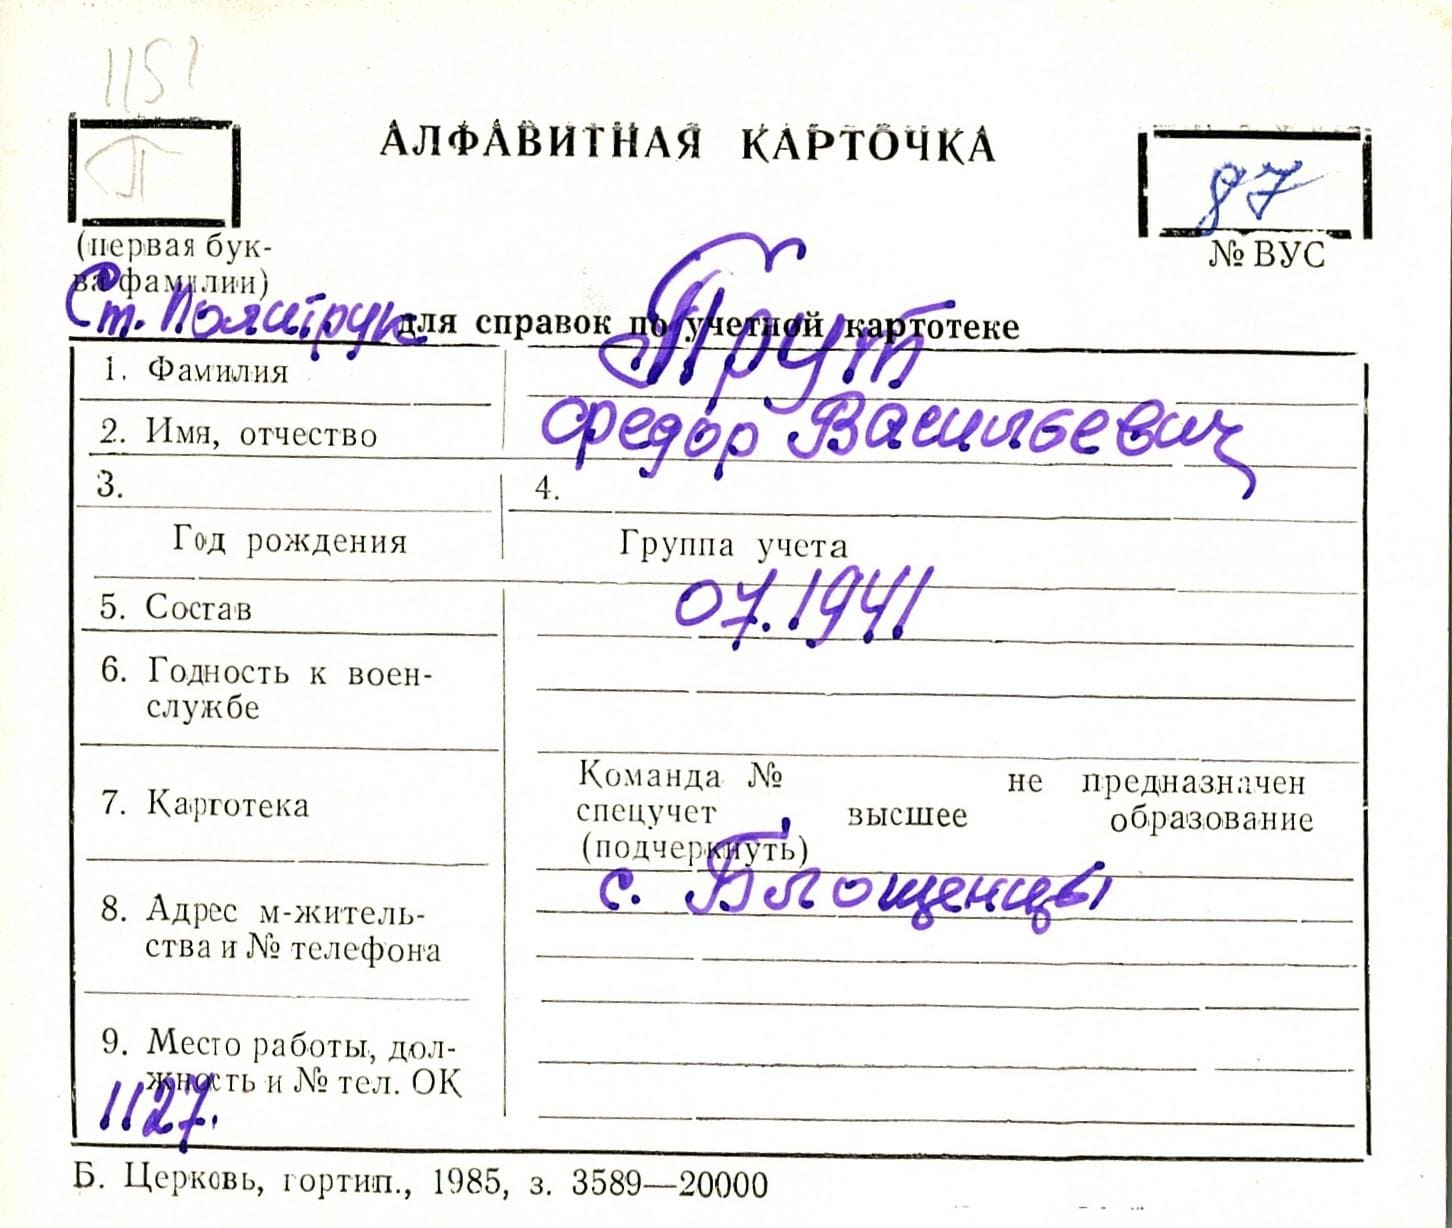 115
П
АЛФАВИТНАЯ КАРТОЧКА
87
(первая бук-
ва фамилии)
№ ВУС
Ст. Политрук
для справок по учетной картотеке
1. Фамилия
Прут
2. Имя, отчество
Федор Васильевич
3.
4.
Год рождения
Группа учета
5. Состав
07.1941
6. Годность к воен-
службе
7. Картотека
Команда № не предназначен
спецучет , высшее образование
(подчеркнуть)
8. Адрес м-житель-
ства и № телефона
с. Блощенцы
9. Место работы, дол-
жность и № тел. ОК
1127.
Б. Церковь, гортип., 1985, з. 3589—20000